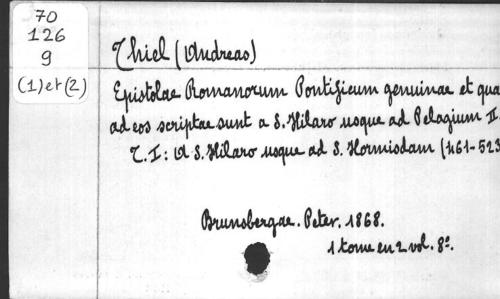 70
126
9
(1) et (2)
Thiel (Andreas)
Epistolae Romanorum Pontificum genuinae et quae
ad eos scriptae sunt a S. Hilaro usque ad Pelagium II.
T. I: A S. Hilaro usque ad S. Hormisdam (461-523
Brunsbergae. Peter. 1868.
1 tome en 2 vol. 8º.